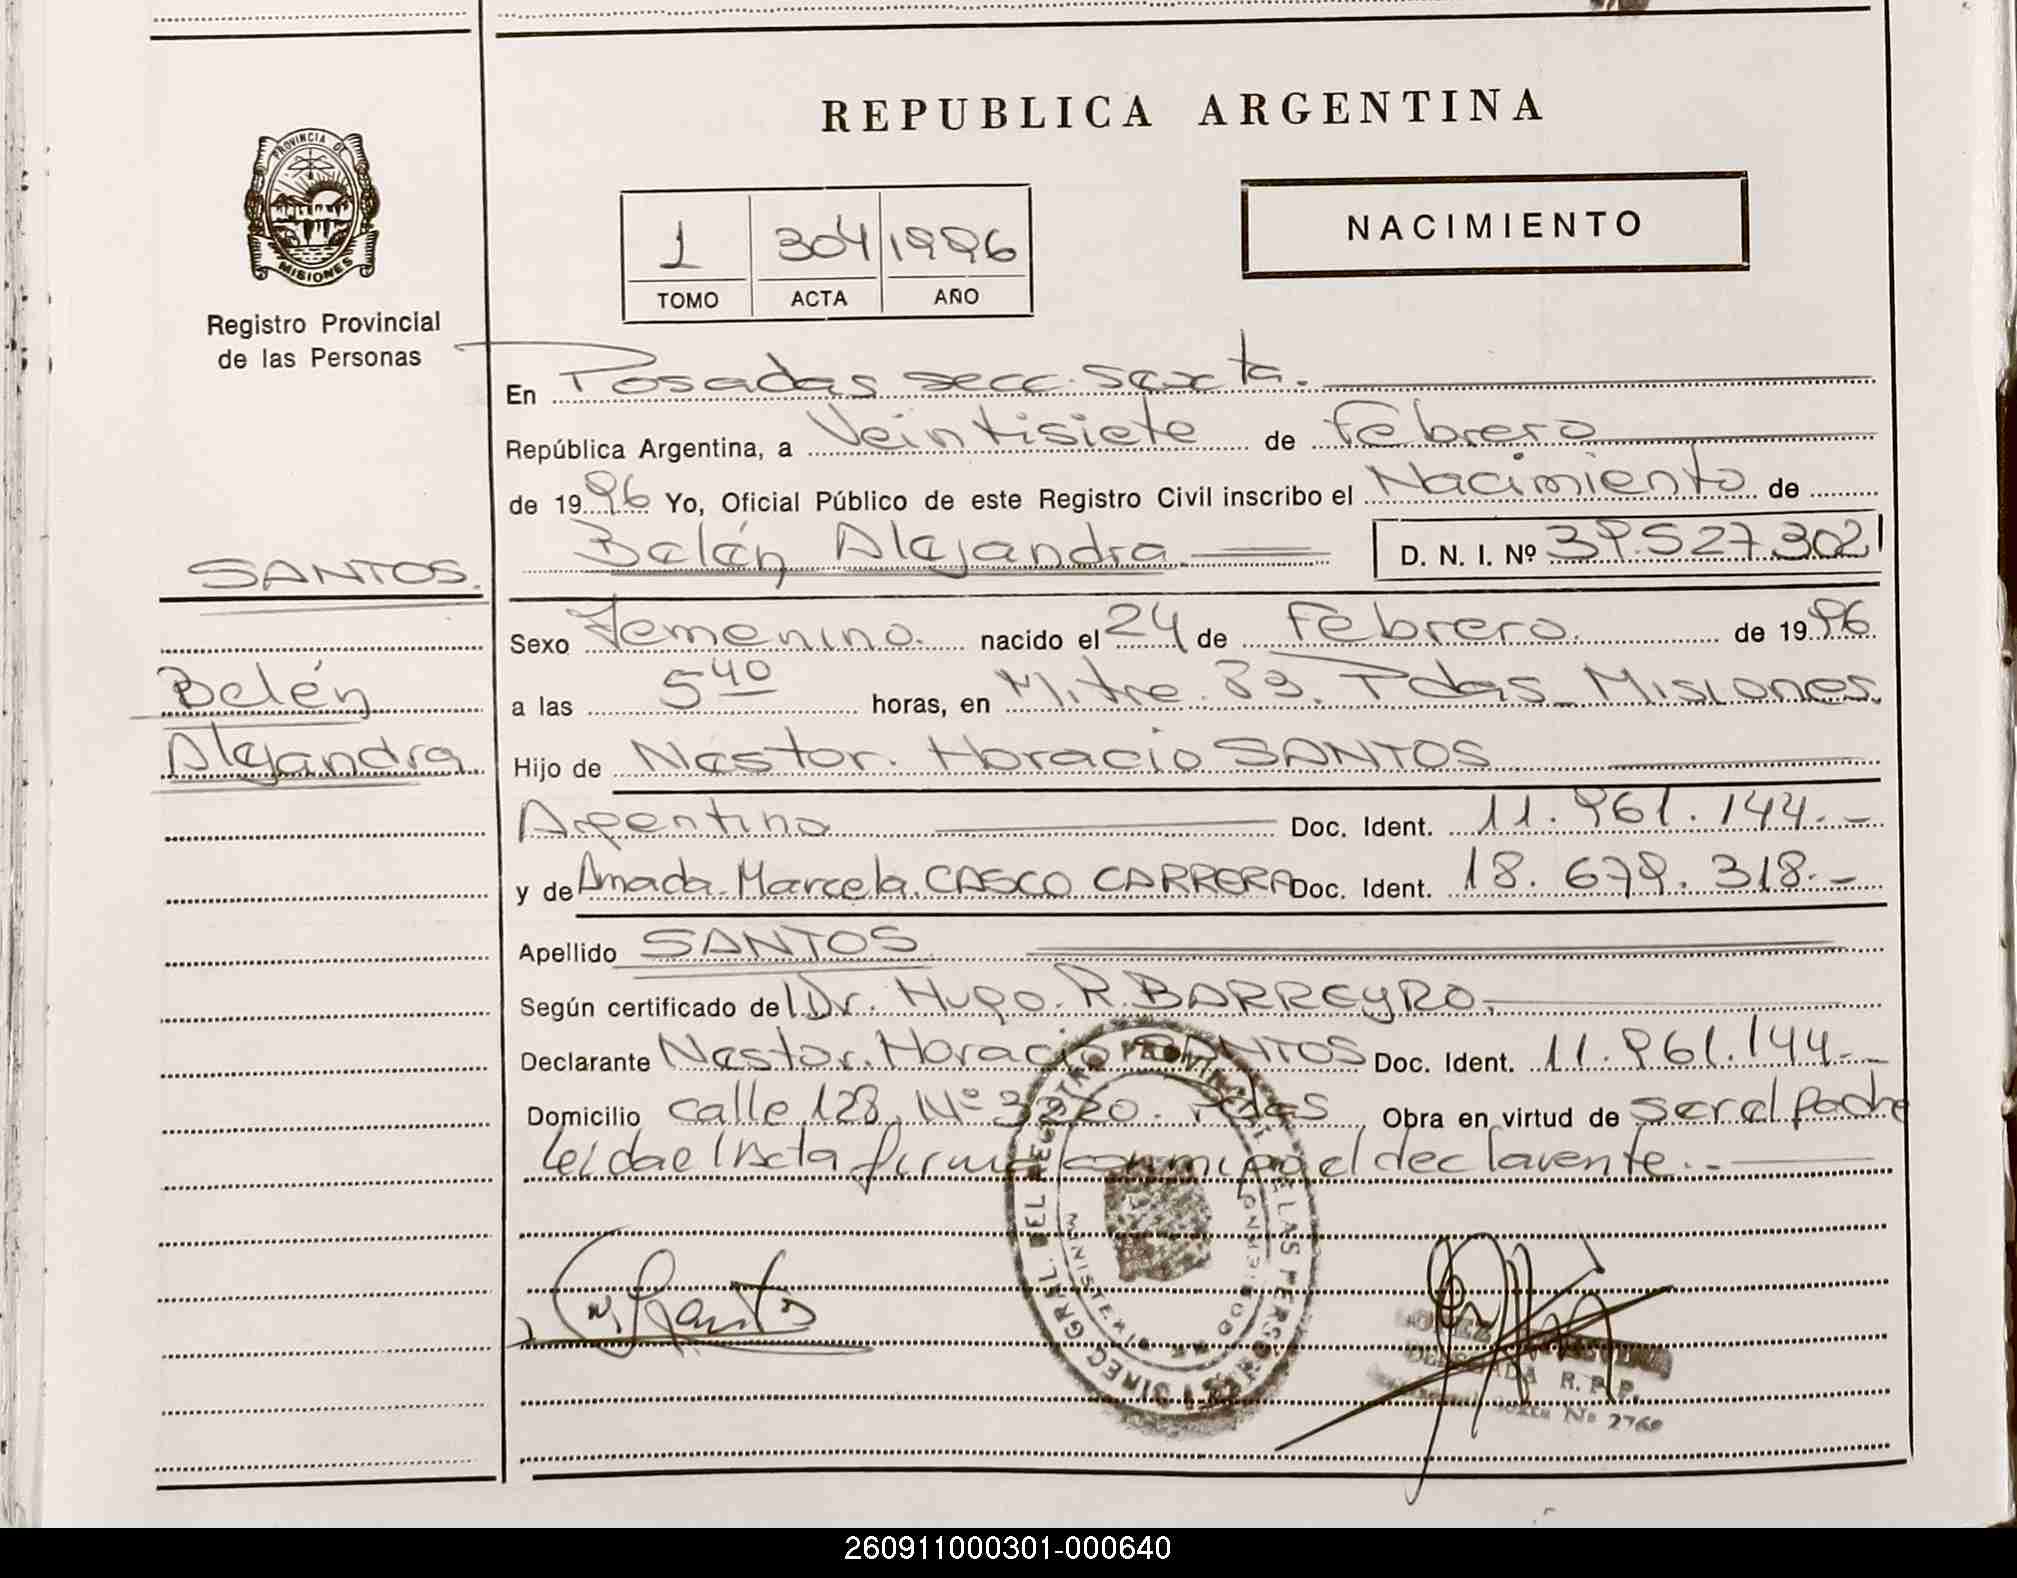 REPUBLICA ARGENTINA
PROVINCIA DE
MISIONES
Registro Provincial
de las Personas
NACIMIENTO
1 304 1996
TOMO ACTA AÑO
En Posadas secc. Sexta.
República Argentina, a Veintisiete de Febrero
de 1996 Yo, Oficial Público de este Registro Civil inscribo el Nacimiento de
Belén Alejandra D. N. I. Nº 39.527.302
SANTOS.
Belén
Alejandra
Sexo Femenino. nacido el 24 de Febrero. de 1996
a las 5 40 horas, en Mitre. 83. Pdas Misiones.
Hijo de Nestor. Horacio SANTOS
Argentino Doc. Ident. 11.961.144.-
y de Amada. Marcela. CASCO CARRERA Doc. Ident. 18.679.318.-
Apellido SANTOS.
Según certificado del Dr. Hugo. R. BARREYRO.
Declarante Nestor. Horacio SANTOS Doc. Ident. 11.961.144.-
Domicilio calle 128. Nº 3220. Pdas Obra en virtud de ser el padre
leida el Acta firma conmigo el declarante.-
DIREC. GRAL. DEL REGISTRO PROVINCIAL DE LAS PERSONAS
MINISTERIO DE GOBIERNO
N. Santos
DELEGADA R. P. P.
Nº 2760
260911000301-000640